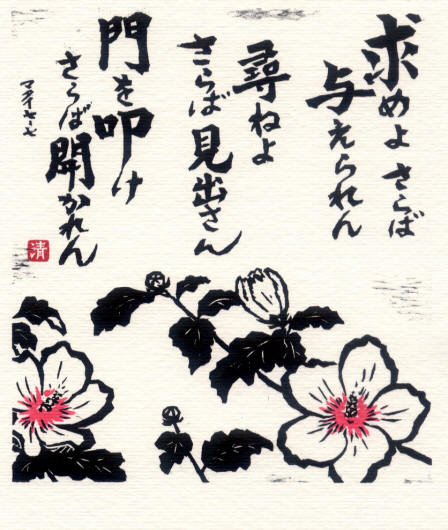 求めよ さらば
与えられん
尋ねよ
さらば見出さん
門を叩け
さらば開かれん
マタイ七-七
清